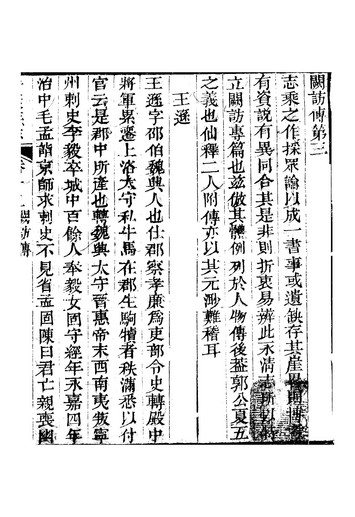 闕訪傳第三
志乘之作採眾論以成一書事或遺缺存其崖畧則搢紳
有資說有異同合其是非則折衷易辨此永清志所以
立闕訪專篇也兹倣其體例列於人物傳後葢郭公夏五
之義也仙釋二人附傳亦以其元渺難稽耳
王遜
王遜字邵伯魏興人也仕郡察孝廉為吏部令史轉殿中
將軍累遷上洛太守私牛馬在郡生駒犢者秩滿悉以付
官云是郡中所產也轉魏興太守晉惠帝末西南夷叛寧
州刺史李毅卒城中百餘人奉毅女固守經年永嘉四年
治中毛孟詣京師求刺史不見省孟固陳曰君亡親喪幽
闕訪傳